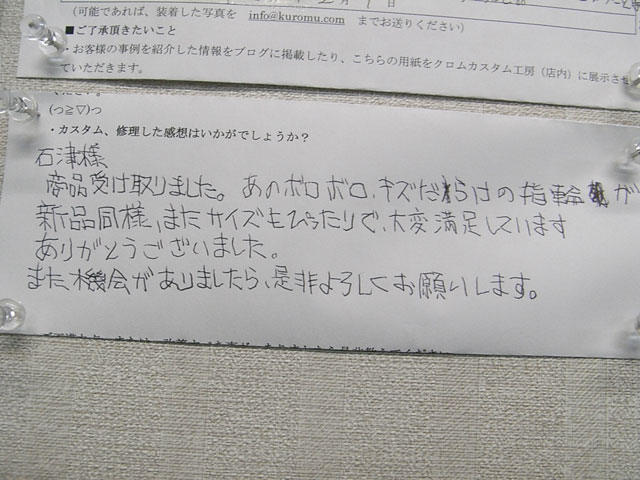 (可能であれば、装着した写真を info@kuromu.com までお送りください)
■ご了承頂きたいこと
・お客様の事例を紹介した情報をブログに掲載したり、こちらの用紙をクロムカスタム工房（店内）に展示させ
ていただきます。
(っ≧▽)っ
・カスタム、修理した感想はいかがでしょうか？
石津様
商品受け取りました。あのボロボロ、キズだらけの指輪が
新品同様、またサイズもぴったりで、大変満足しています
ありがとうございました。
また機会がありましたら、是非よろしくお願いします。